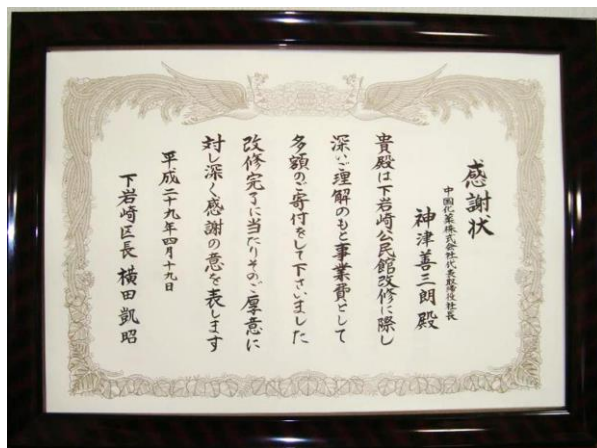 感謝状
中國化薬株式会社代表取締役社長
神津善三朗殿
貴殿は下岩崎公民館改修に際し
深いご理解のもと事業費として
多額のご寄付をして下さいました
改修完了に当たりそのご厚意に
対し深く感謝の意を表します
平成二十九年四月十九日
下岩崎区長 横田凱昭